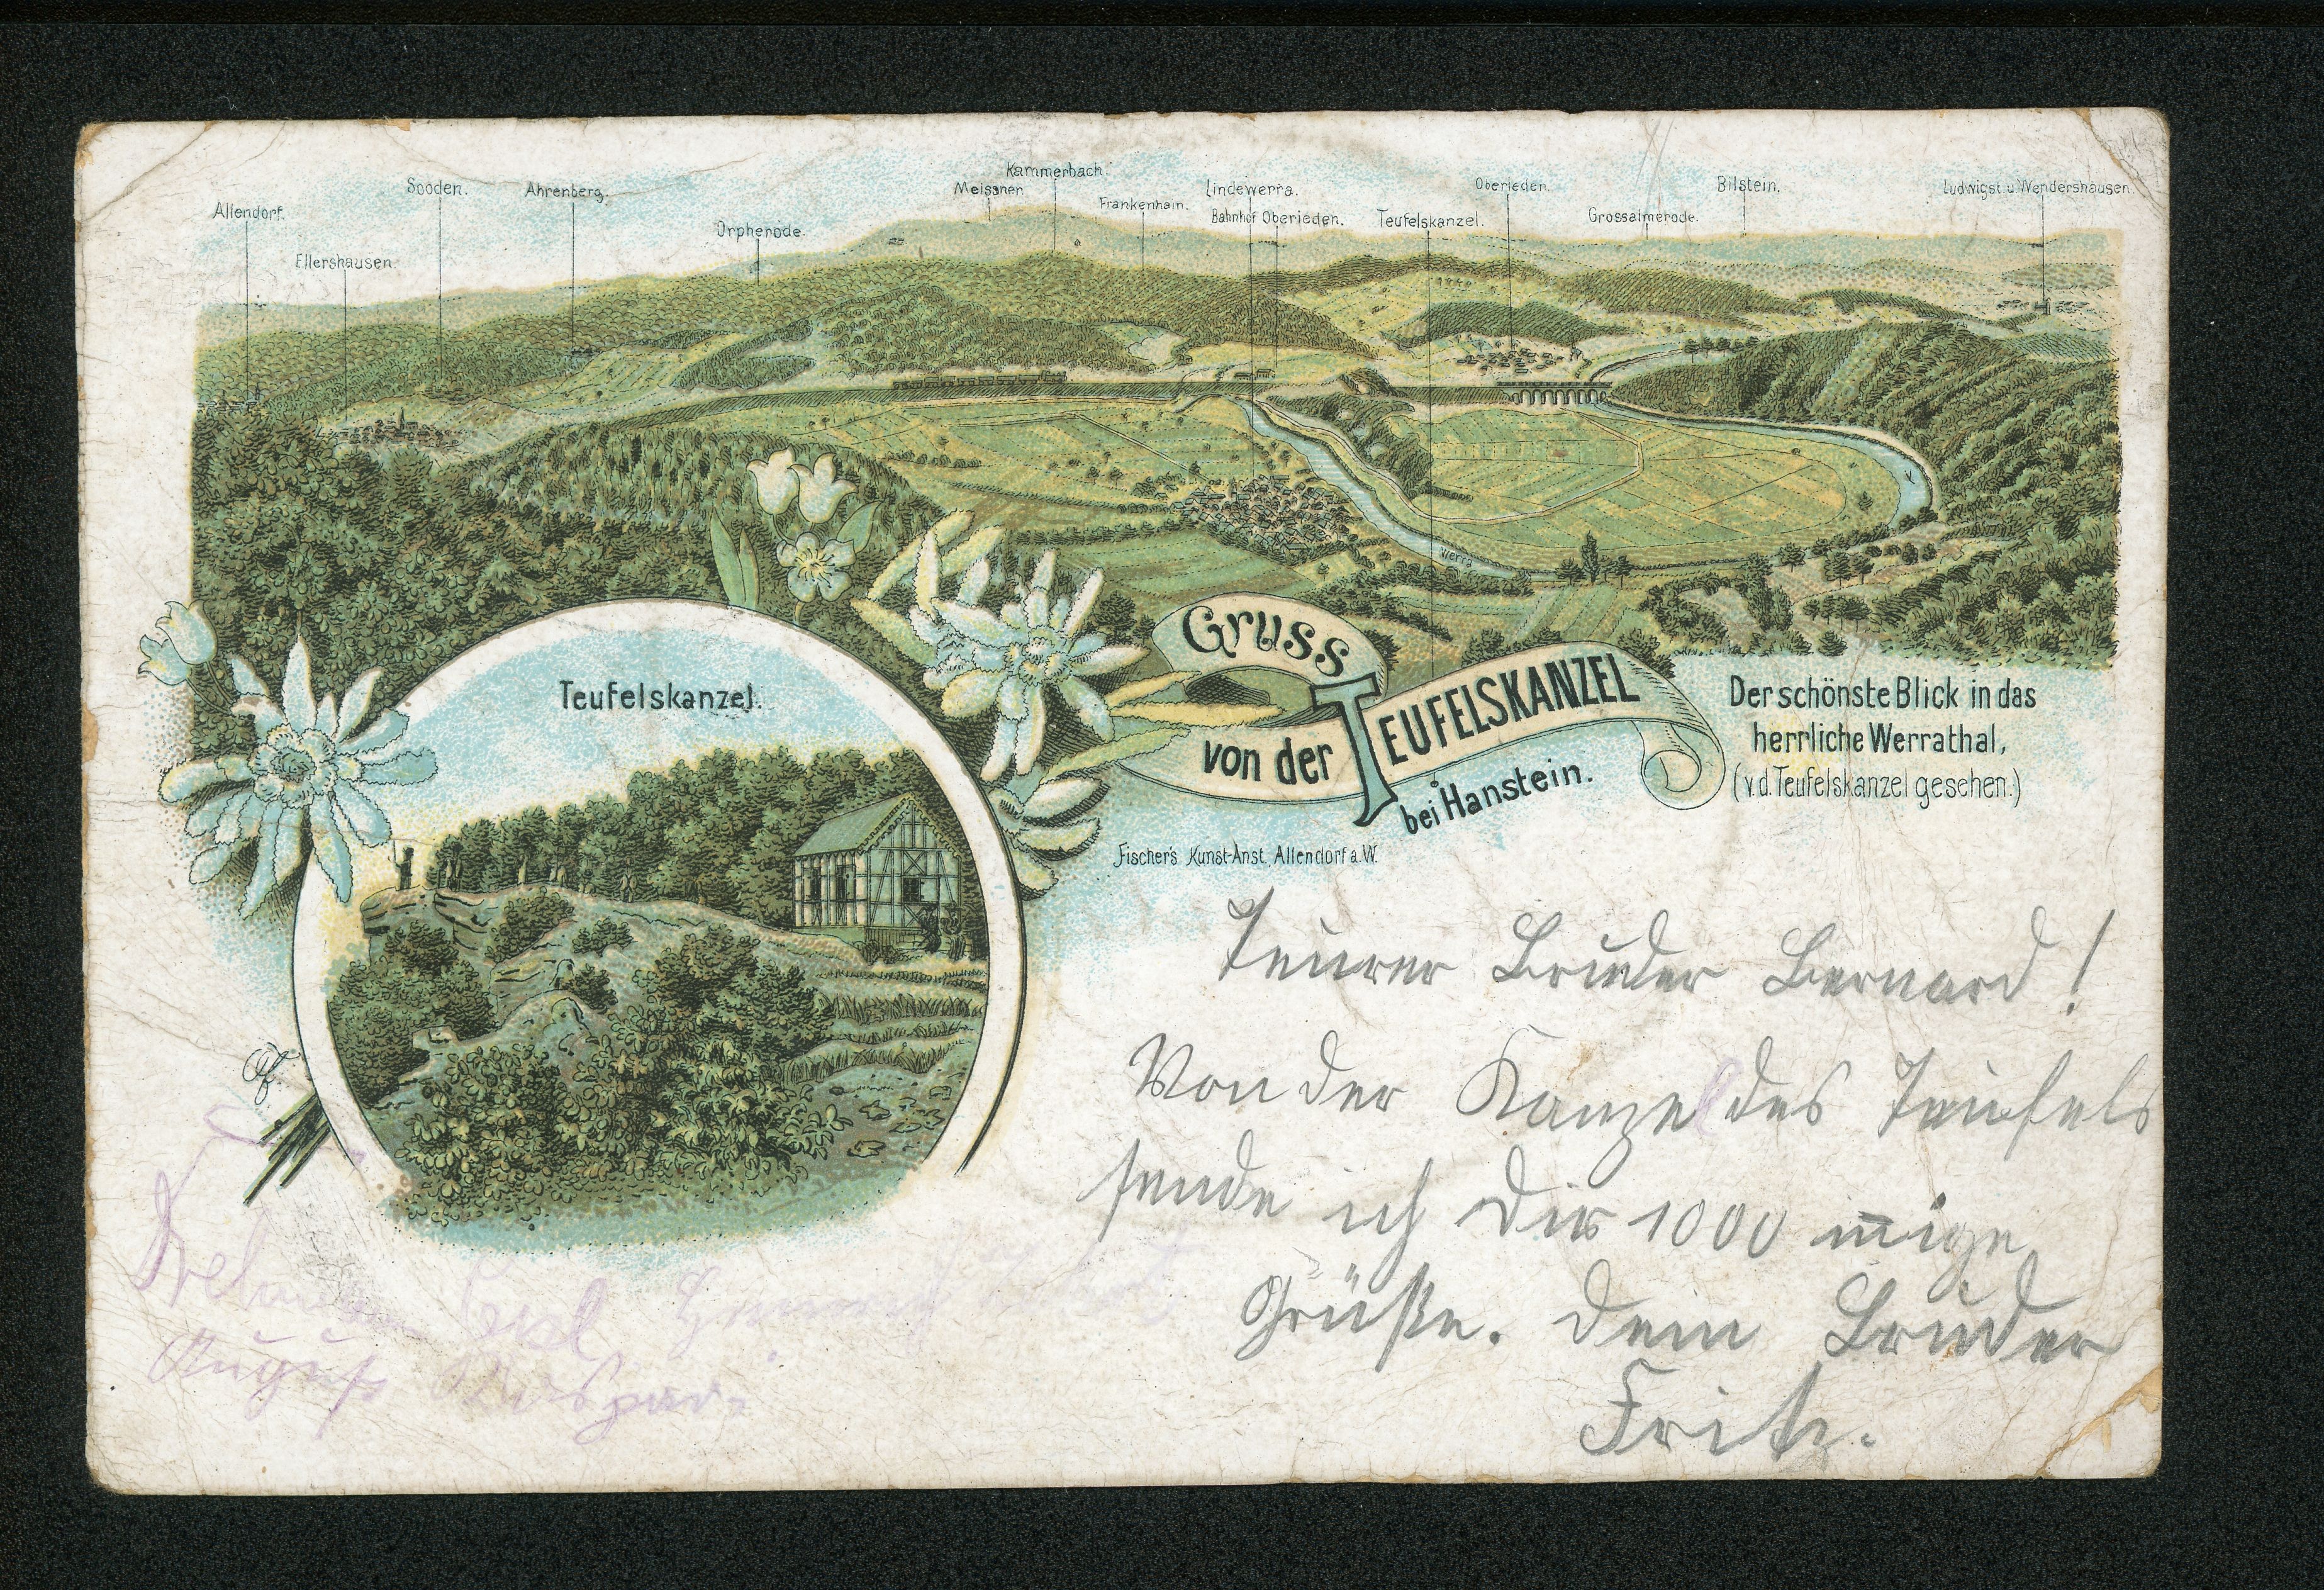 Kammerbach.
Sooden. Ahrenberg. Meissner. Lindewerra. Oberieden. Bilstein. Ludwigst. u. Wendershausen.
Allendorf. Frankenhain. Bahnhof Oberieden. Teufelskanzel. Grossalmerode.
Orpherode.
Ellershausen.
Werra
Gruss
von der TEUFELSKANZEL
bei Hanstein.
Der schönste Blick in das
herrliche Werrathal,
(v. d. Teufelskanzel gesehen.)
Teufelskanzel.
Fischer's Kunst-Anst., Allendorf a. W.
Teurer Bruder Bernard!
Von der Kanzel des Teufels
sende ich Dir 1000 innige
Grüße. Dein Bruder
Fritz.
August